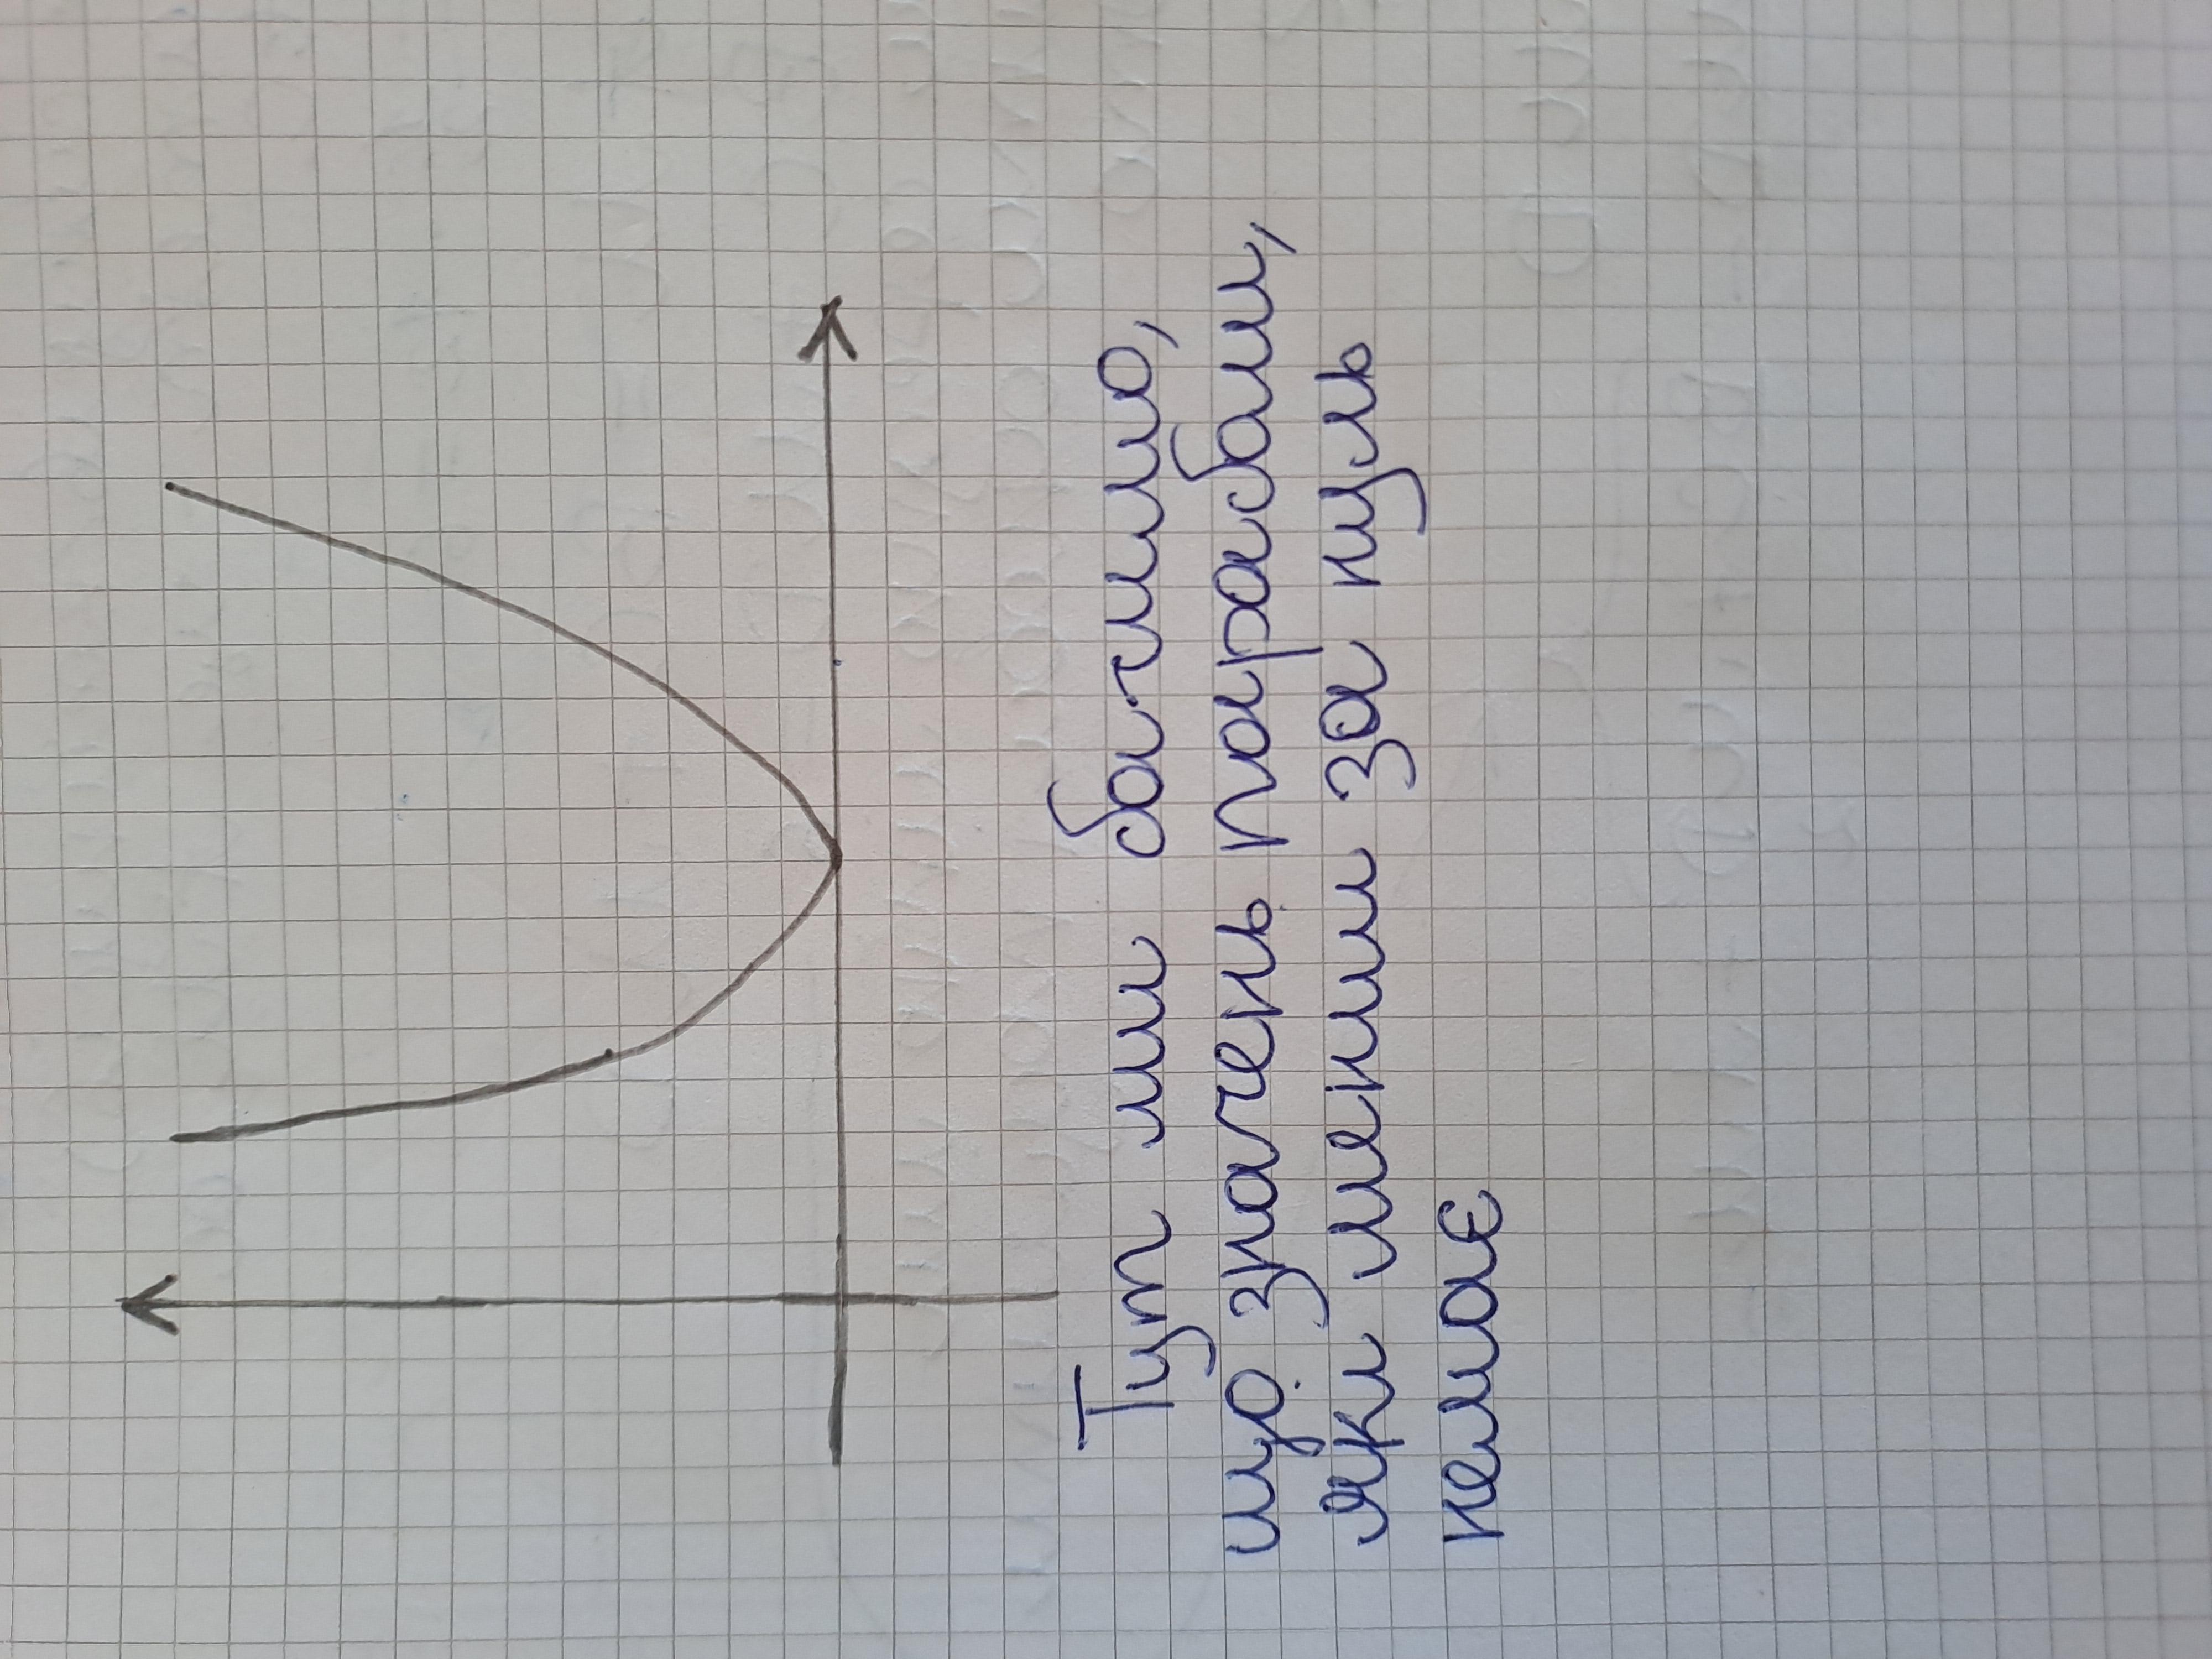 Тут ми бачимо,
що значень параболи,
які менші за нуль
немає